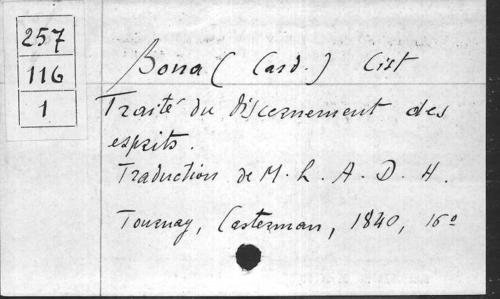 257
116
1
Bona (Card.) Cist
Traité du Discernement des
esprits.
Traduction de M. L. A. D. H.
Tournay, Casterman, 1840, 16º